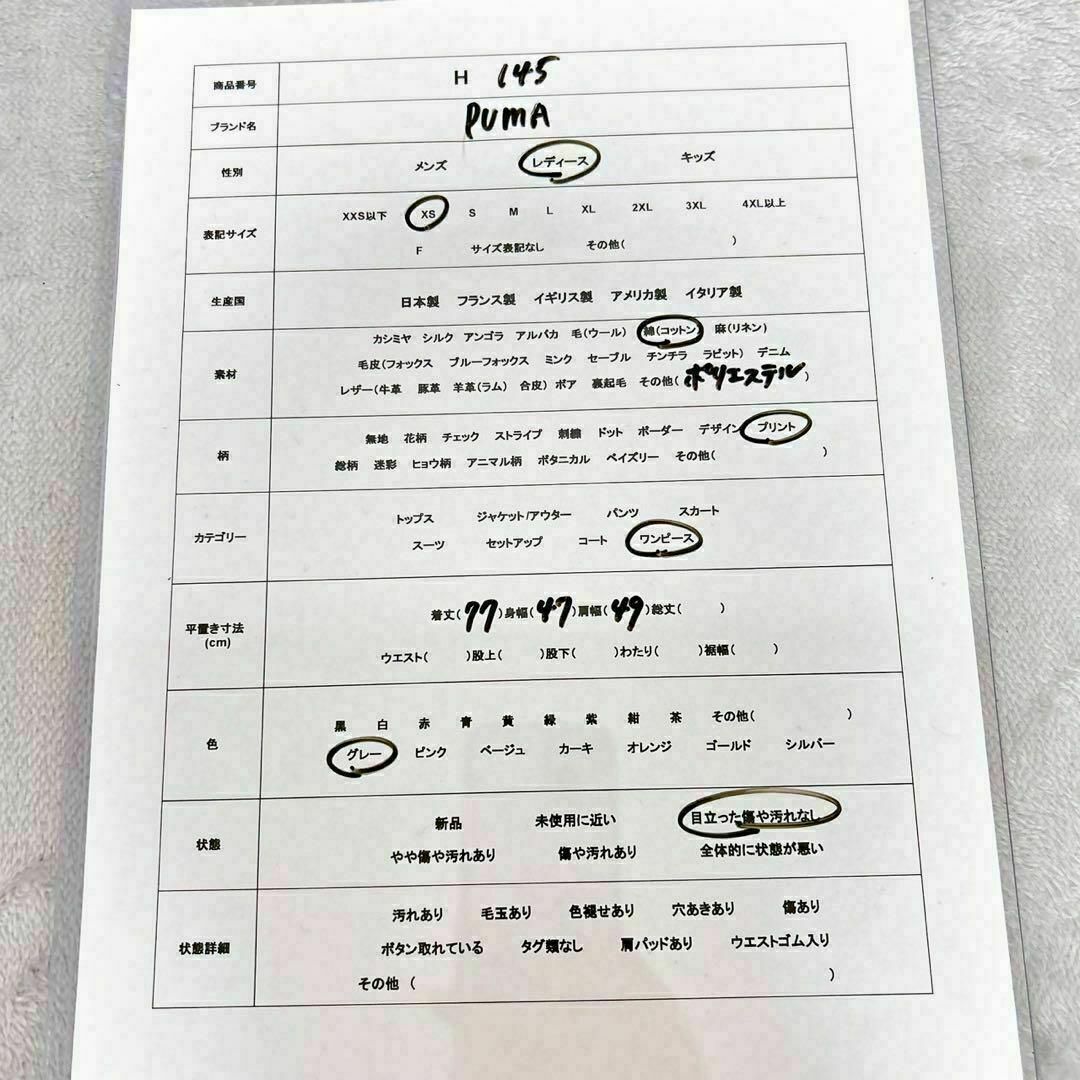 商品番号 H 145
ブランド名 PUMA
性別 メンズ レディース キッズ
表記サイズ
XXS以下 XS S M L XL 2XL 3XL 4XL以上
F サイズ表記なし その他( )
生産国 日本製 フランス製 イギリス製 アメリカ製 イタリア製
素材
カシミヤ シルク アンゴラ アルパカ 毛(ウール) 綿(コットン) 麻(リネン)
毛皮(フォックス ブルーフォックス ミンク セーブル チンチラ ラビット) デニム
レザー(牛革 豚革 羊革(ラム) 合皮) ボア 裏起毛 その他(ポリエステル)
柄
無地 花柄 チェック ストライプ 刺繍 ドット ボーダー デザイン プリント
総柄 迷彩 ヒョウ柄 アニマル柄 ボタニカル ペイズリー その他( )
カテゴリー
トップス ジャケット/アウター パンツ スカート
スーツ セットアップ コート ワンピース
平置き寸法
(cm)
着丈(77)身幅(47)肩幅(49)総丈( )
ウエスト( )股上( )股下( )わたり( )裾幅( )
色
黒 白 赤 青 黄 緑 紫 紺 茶 その他( )
グレー ピンク ベージュ カーキ オレンジ ゴールド シルバー
状態
新品 未使用に近い 目立った傷や汚れなし
やや傷や汚れあり 傷や汚れあり 全体的に状態が悪い
状態詳細
汚れあり 毛玉あり 色褪せあり 穴あきあり 傷あり
ボタン取れている タグ類なし 肩パッドあり ウエストゴム入り
その他 ( )